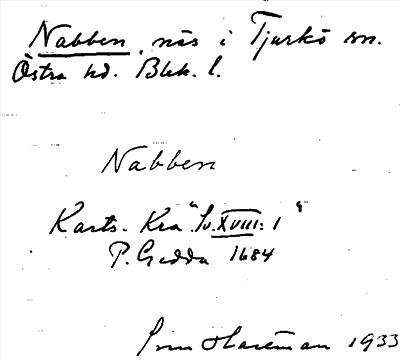 Nabben, näs i Tjurkö sn.
Östra hd. Blek. l.
Nabben
Karts. Kra "Sv. XVIII: 1"
P. Gedda 1684
1933